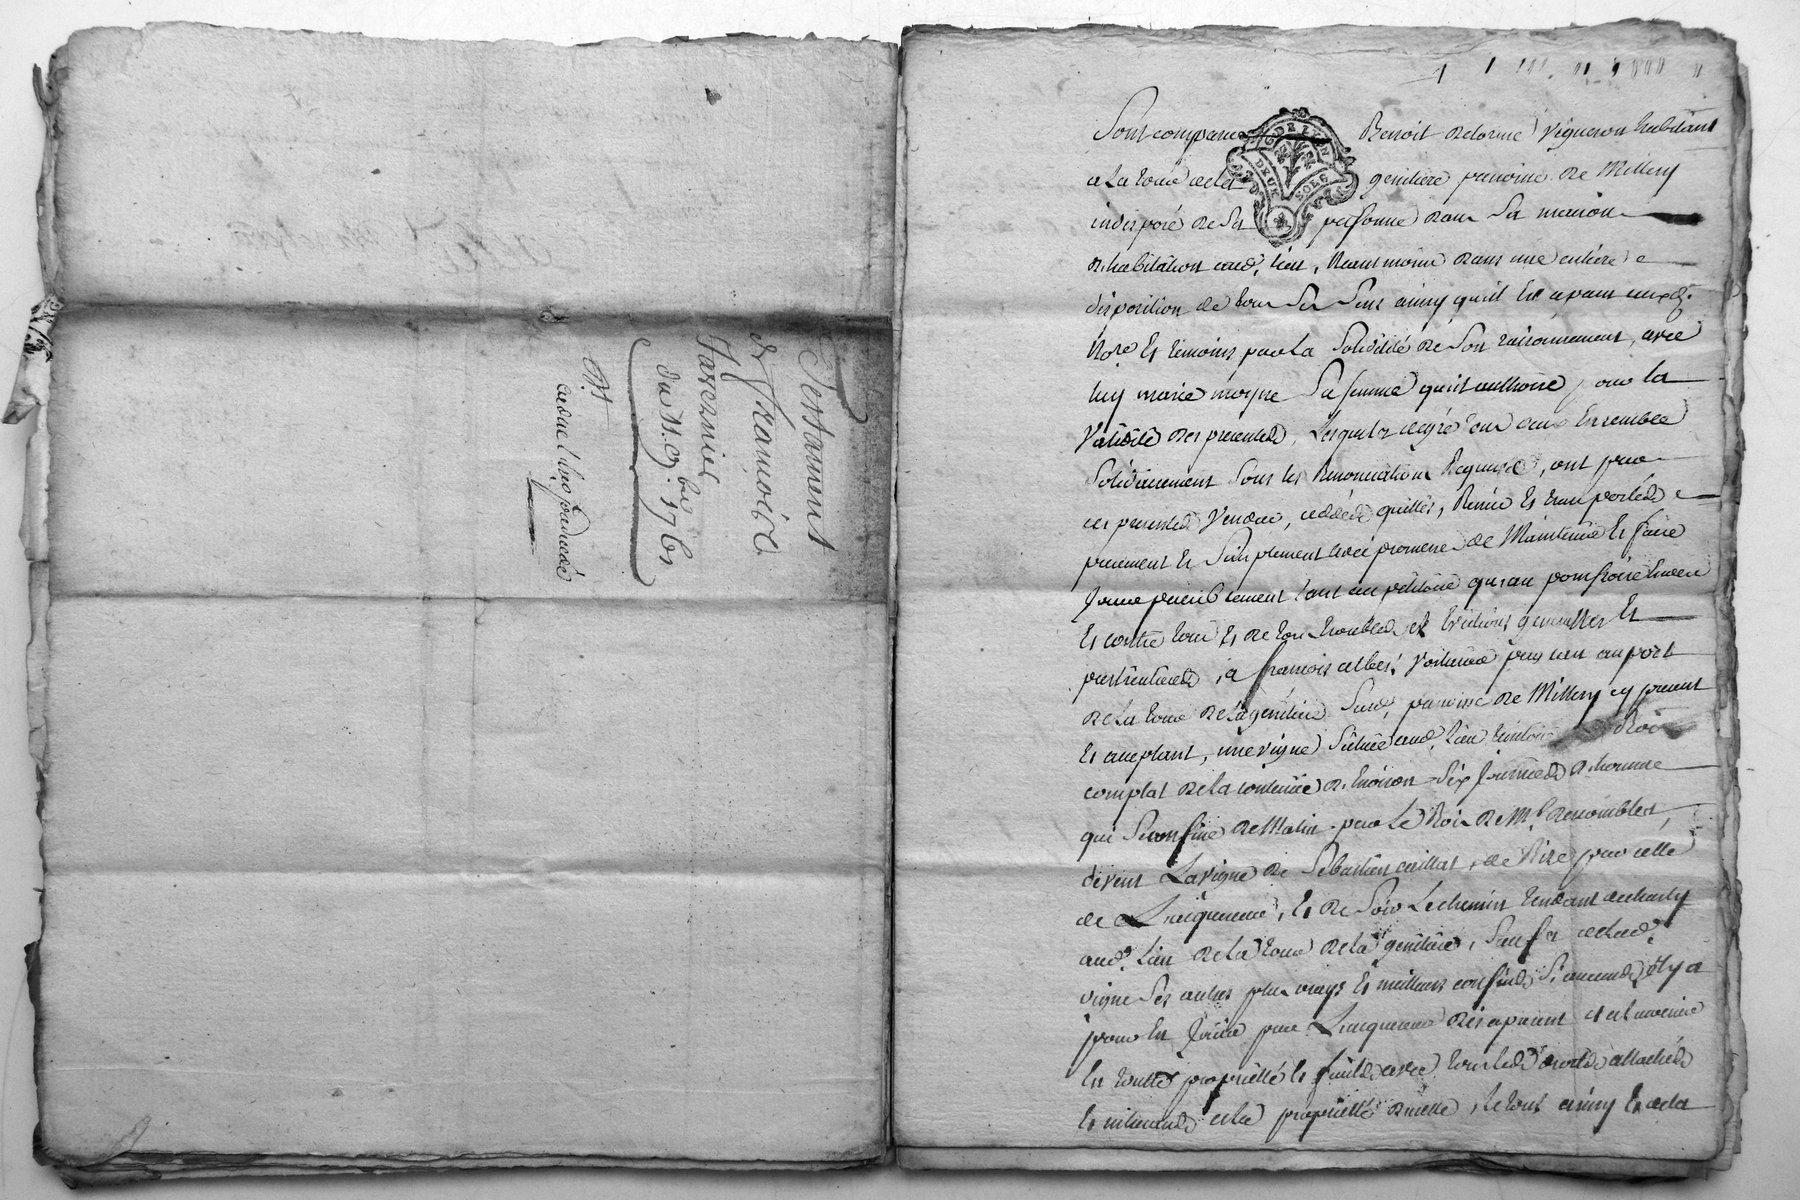 Testament
de françoise
Tavernier
du 11. 9.bre 1761
G. DE LYON
DEUX SOLS
Sont comparus Benoit Delorme vigneron habitant
a La tour de la genetiere paroisse de Millery
indisposé de sa personne dans sa maison
d'habitation aud. lieu, Neantmoins dans une entiere
disposition de tous ses sens ainsy qu'il est aparu auxd.
No.re Et temoins par La Solidité de Son raisonnement, avec
luy marie moyne Sa femme qu'il authorise pour la
Validité des presentes, Lesquels de gré Eux deux Ensemble
Solidairement Sous les Renonciations Requises, ont par
ces presentes Vendu, cedé quitté, Remis Et transporté
purement Et Simplement avec promesse de Maintenir Et faire
Jouir paisiblement tant au petitoire qu'au possessoire Envers
Et contre tous Et de tous troubles et Evictions generalles Et
particulieres, a francois voiturier par eau au port
de La tour de la genetiere Susd. paroisse de Millery cy present
Et aceptant, une vigne Scituée aud. Lieu
complat de la contenue d'Environ Six Journées d'homme
qui Se confine de Matin par Le Bois de M.r
de vent La vigne de Sebastien de Bize par celle
de L'acquereur, Et de Soir Le chemin tendant de charly
aud. Lieu de La tour de la genetiere, Sauf a lad.
vigne Ses autres plus vrays Et meilleurs confins Si aucuns Il y a
pour En Jouir par L'acquereur des apresent et a l'avenir
En toutte proprietté Et fruits avec tous les droits attachés
Et inherants a la proprietté d'icelle, Le tout ainsy Et de la